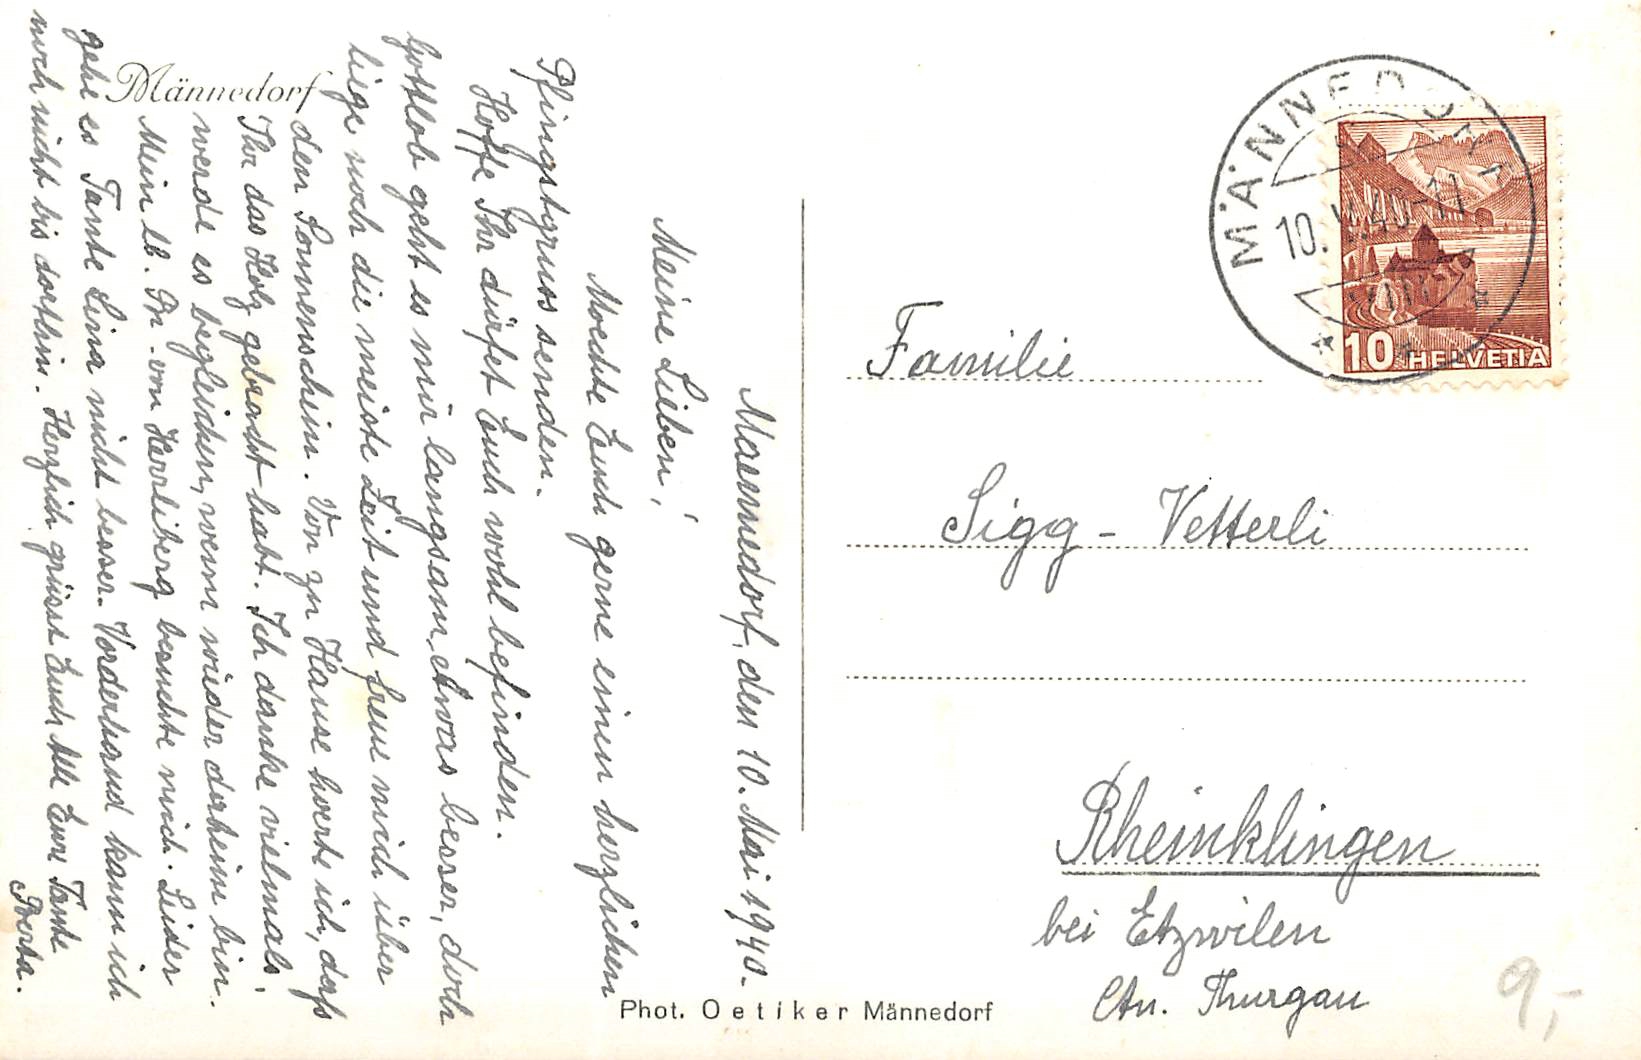 Männedorf
Maennedorf, den 10. Mai 1940.
Meine Lieben!
Moechte Euch gerne einen herzlichen
Pfingstgruss senden.
Hoffe Ihr dürfet Euch wohl befinden.
Gottlob geht es mir langsam etwas besser, doch
liege noch die meiste Zeit und freue mich über
den Sonnenschein. Von zu Hause hoerte ich, dass
Ihr das Holz gebracht habt. Ich danke vielmals,
werde es begleichen, wenn wieder daheim bin.
Mein lb. Br. von Herrliberg besuchte mich. Leider
gehe es Tante Lina nicht besser. Vorderhand kann ich
noch nicht bis dorthin. Herzlich grüsst Euch Alle Eure Tante
Berta.
Phot. Oetiker Männedorf
MÄNNEDORF
10.V.40-11
VIII
10 HELVETIA
Familie
Sigg - Vetterli
Rheinklingen
bei Etzwilen
Ctn. Thurgau
9,-